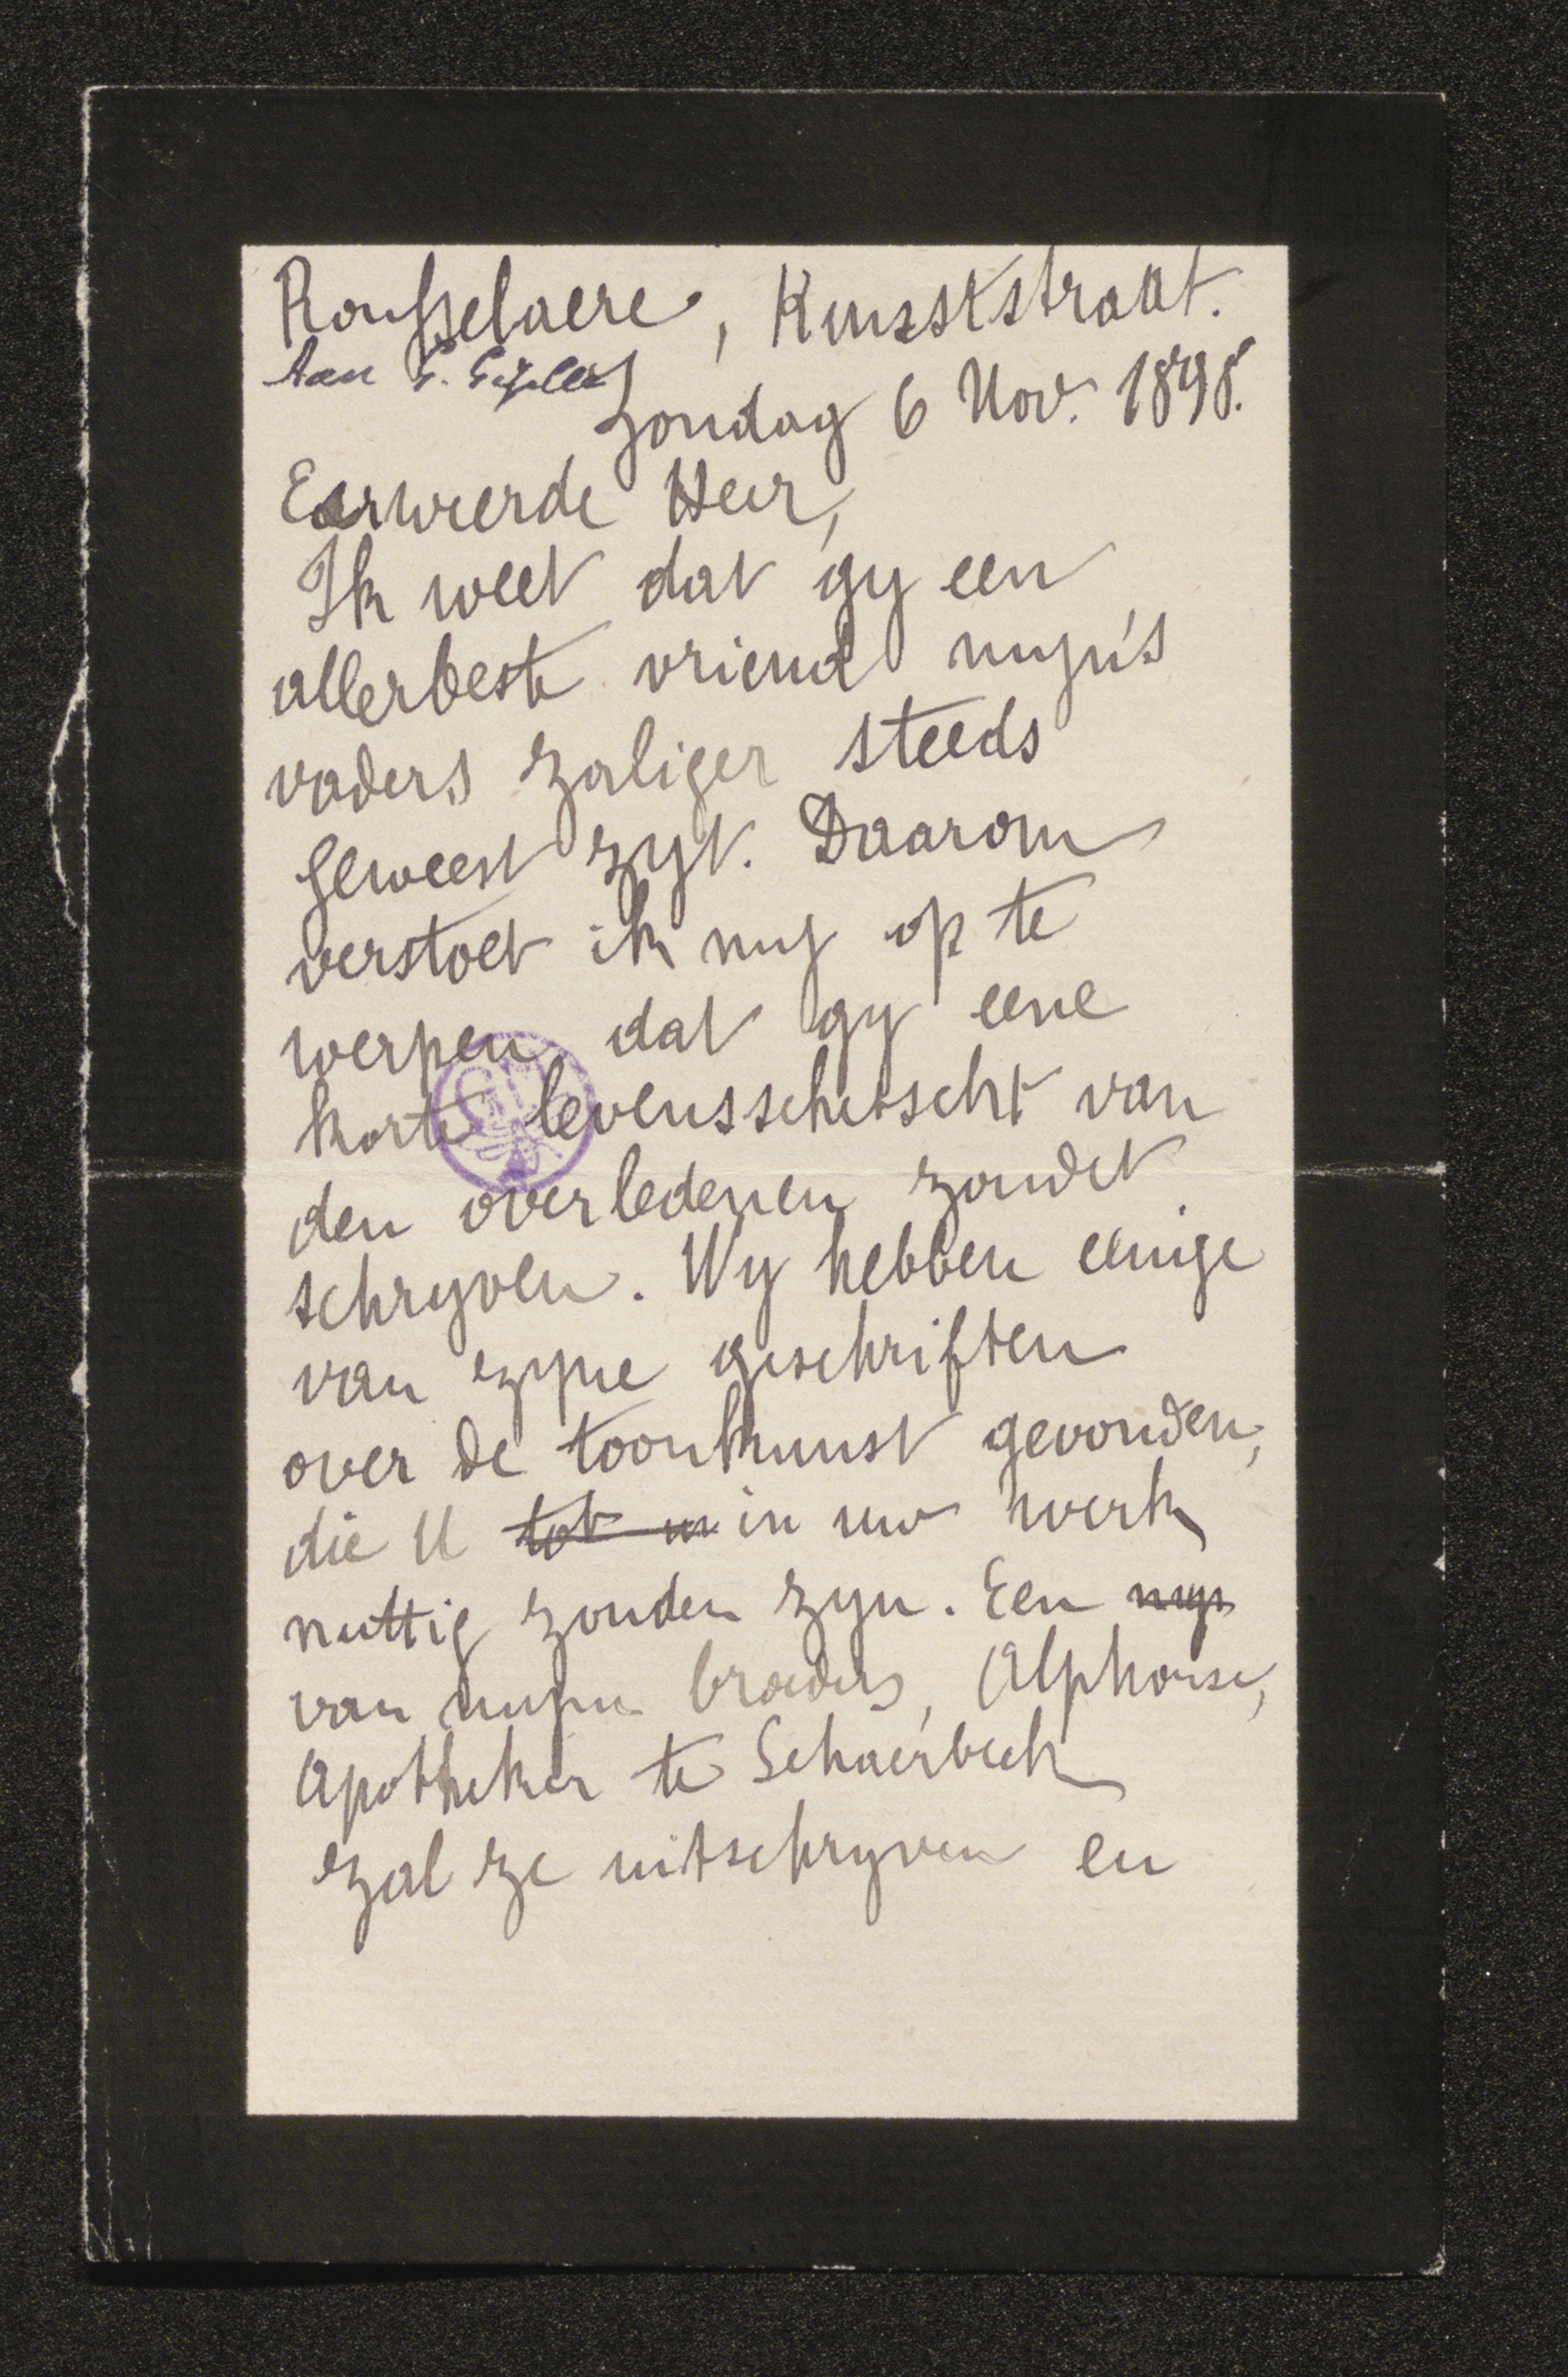 Rousselaere, Kunststraat.
Aan G. Gezelle
Zondag 6 Nov. 1898.
Eerweerde Heer,
Ik weet dat gy een
allerbeste vriend myn's
vaders zaliger steeds
geweest zyt. Daarom
verstoet ik my op te
werpen dat gy eene
korte levensschetscht van
den overledenen zoudet
schryven. Wy hebben eenige
van zyne geschriften
over de toonkunst gevonden,
die U tot u in uw werk
nuttig zouden zyn. Een myn
van myne broeders, Alphonse,
Apotheker te Schaerbeek
zal ze uitschryven en